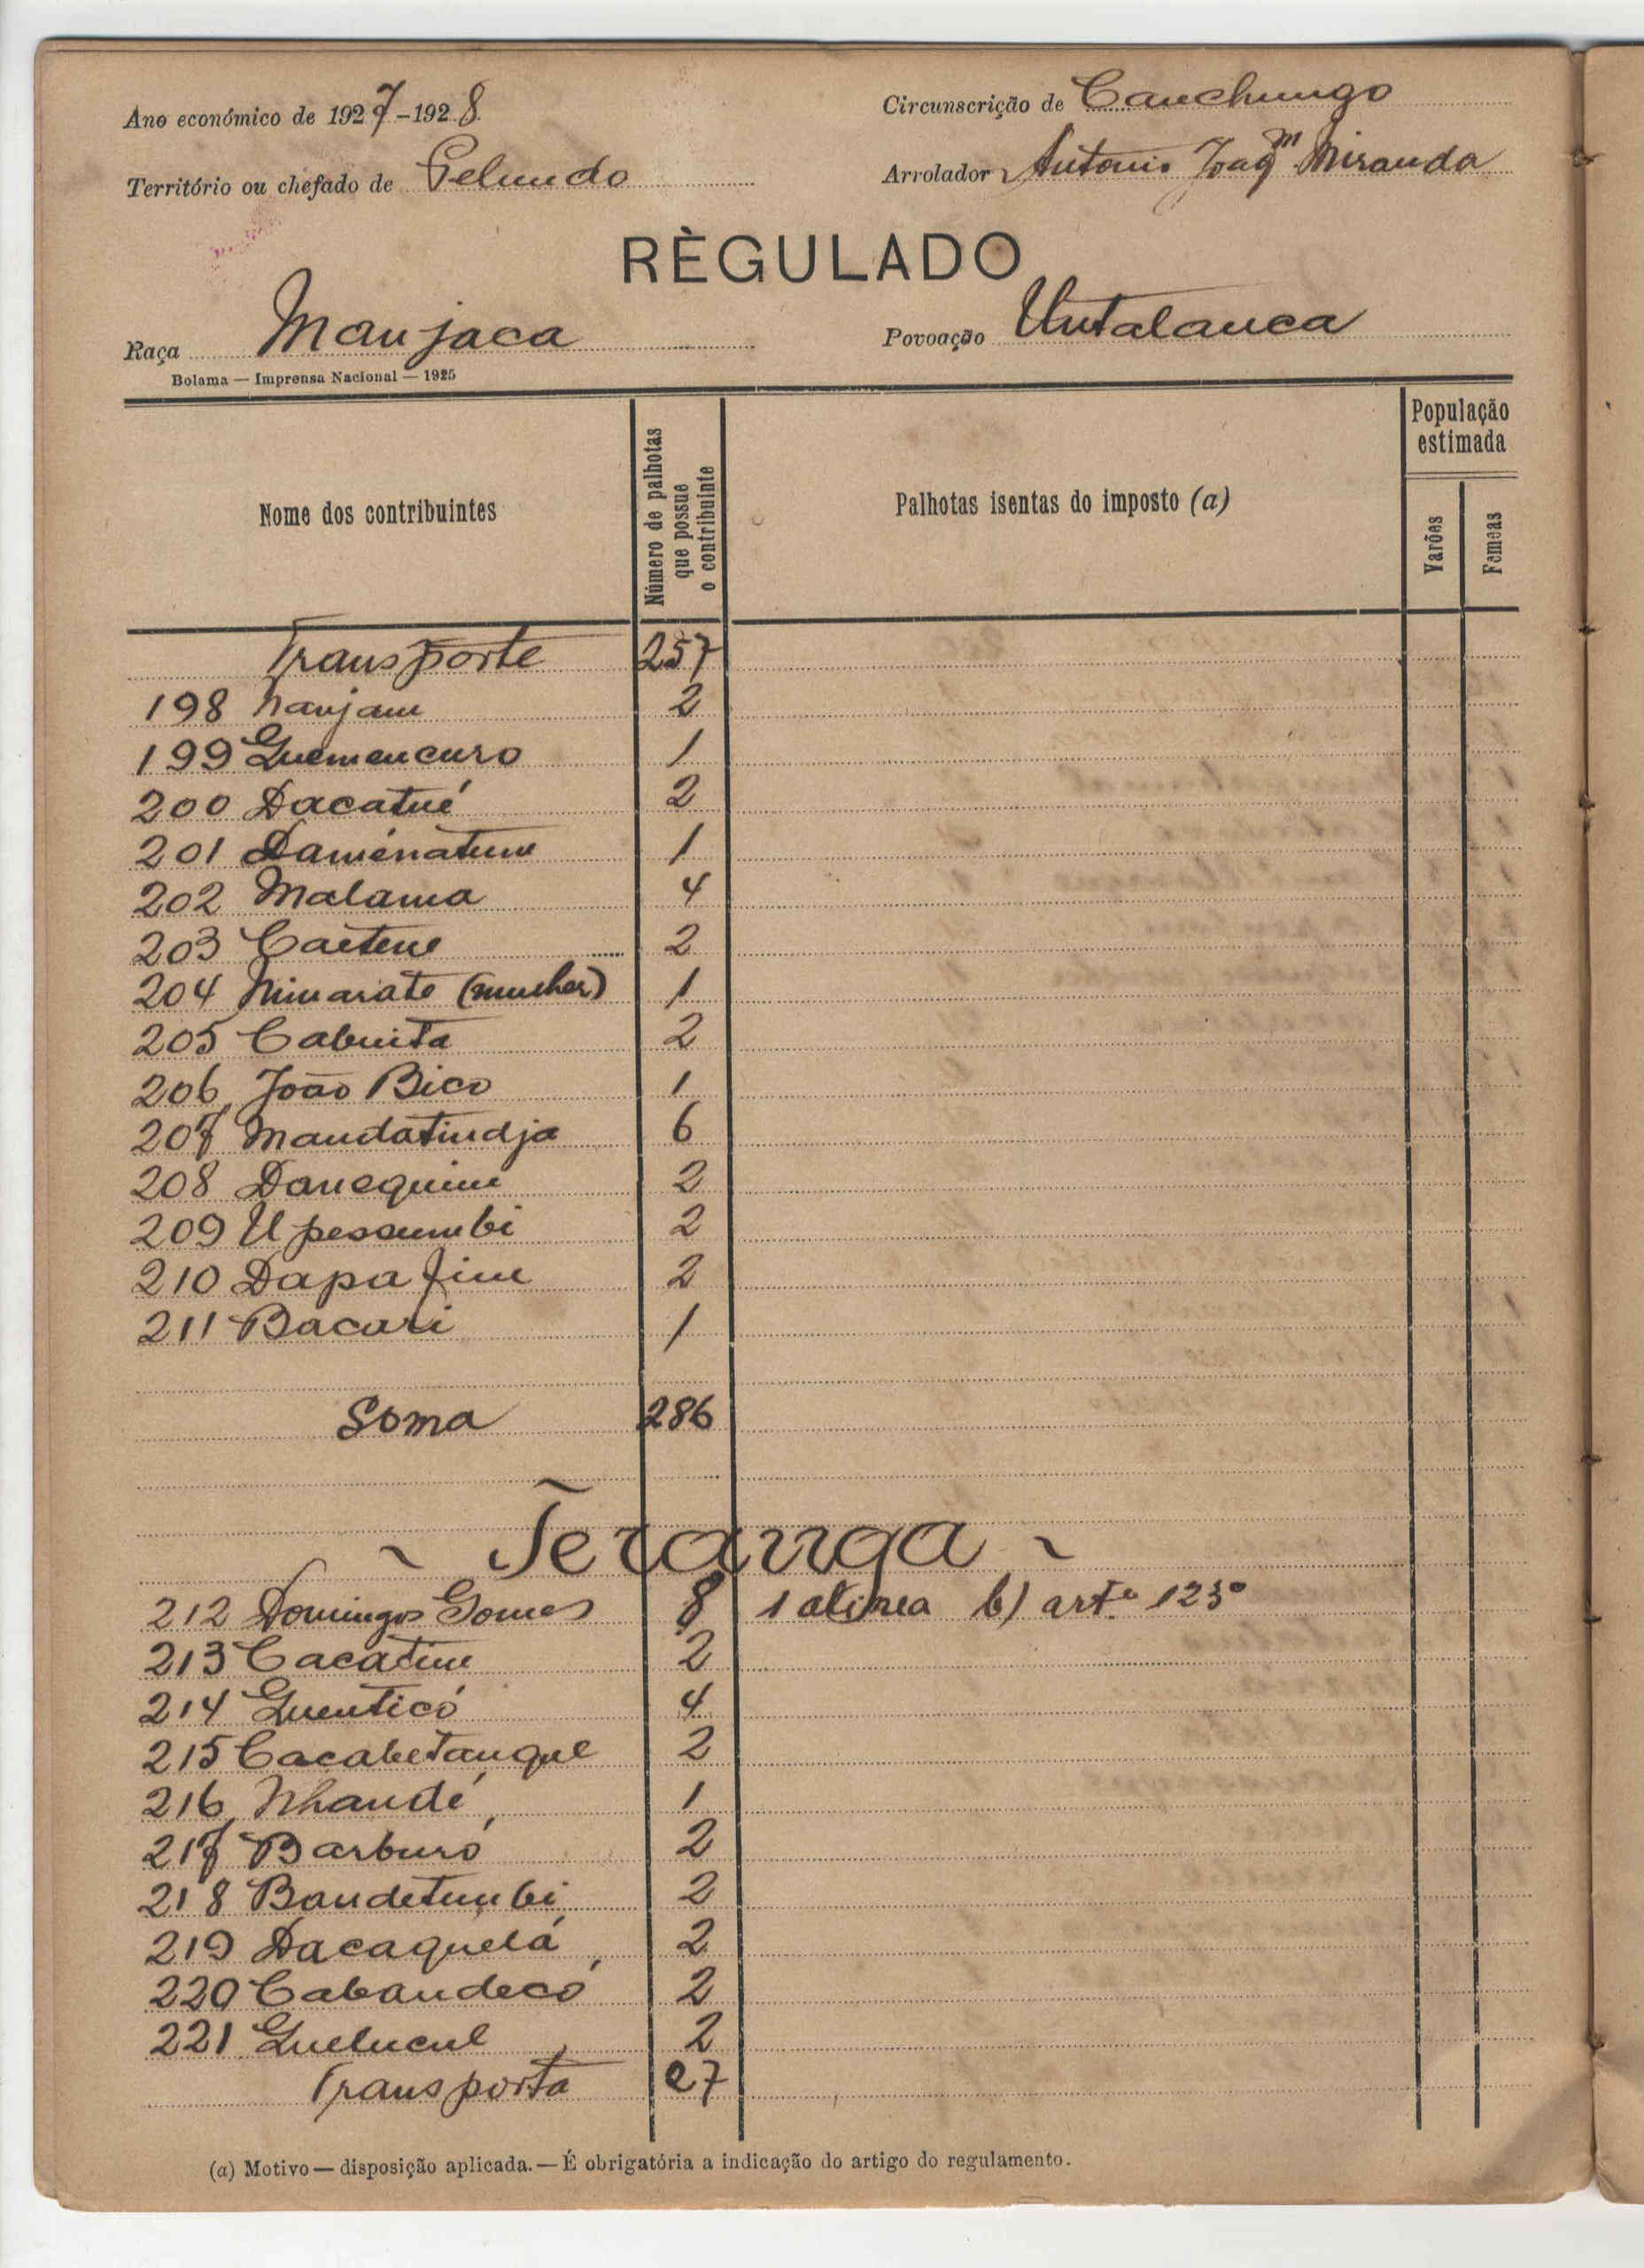 Ano económico de 1927-1928
Circunscrição de Canchungo
Território ou chefado de Pelundo
Arrolador Antonio Joaqm Miranda
RÈGULADO
Raça Manjaca
Povoação Untalanca
Bolama — Imprensa Nacional — 1925
Nome dos contribuintes
Número de palhotas que possue o contribuinte
Palhotas isentas do imposto (a)
População estimada
Varões
Femeas
Transporte 257
198 Nanjam 2
199 Quemencuro 1
200 Dacatué 2
201 Daménatum 1
202 Malama 4
203 Caetene 2
204 Nimarate (mulher) 1
205 Cabuita 2
206 João Bico 1
207 Mandatindja 6
208 Danequim 2
209 Upessumbi 2
210 Dapa Jim 2
211 Bacari 1
Soma 286
~ Teranga ~
212 Domingos Gomes 8 1 alinea b) artº 123º
213 Cacatim 2
214 Quenticó 4
215 Cacabetanque 2
216 Nhandé 1
217 Barburó 2
218 Bandetumbi 2
219 Dacaquelá 2
220 Cabandecó 2
221 Quelucul 2
Transporta 27
(a) Motivo — disposição aplicada. — É obrigatória a indicação do artigo do regulamento.